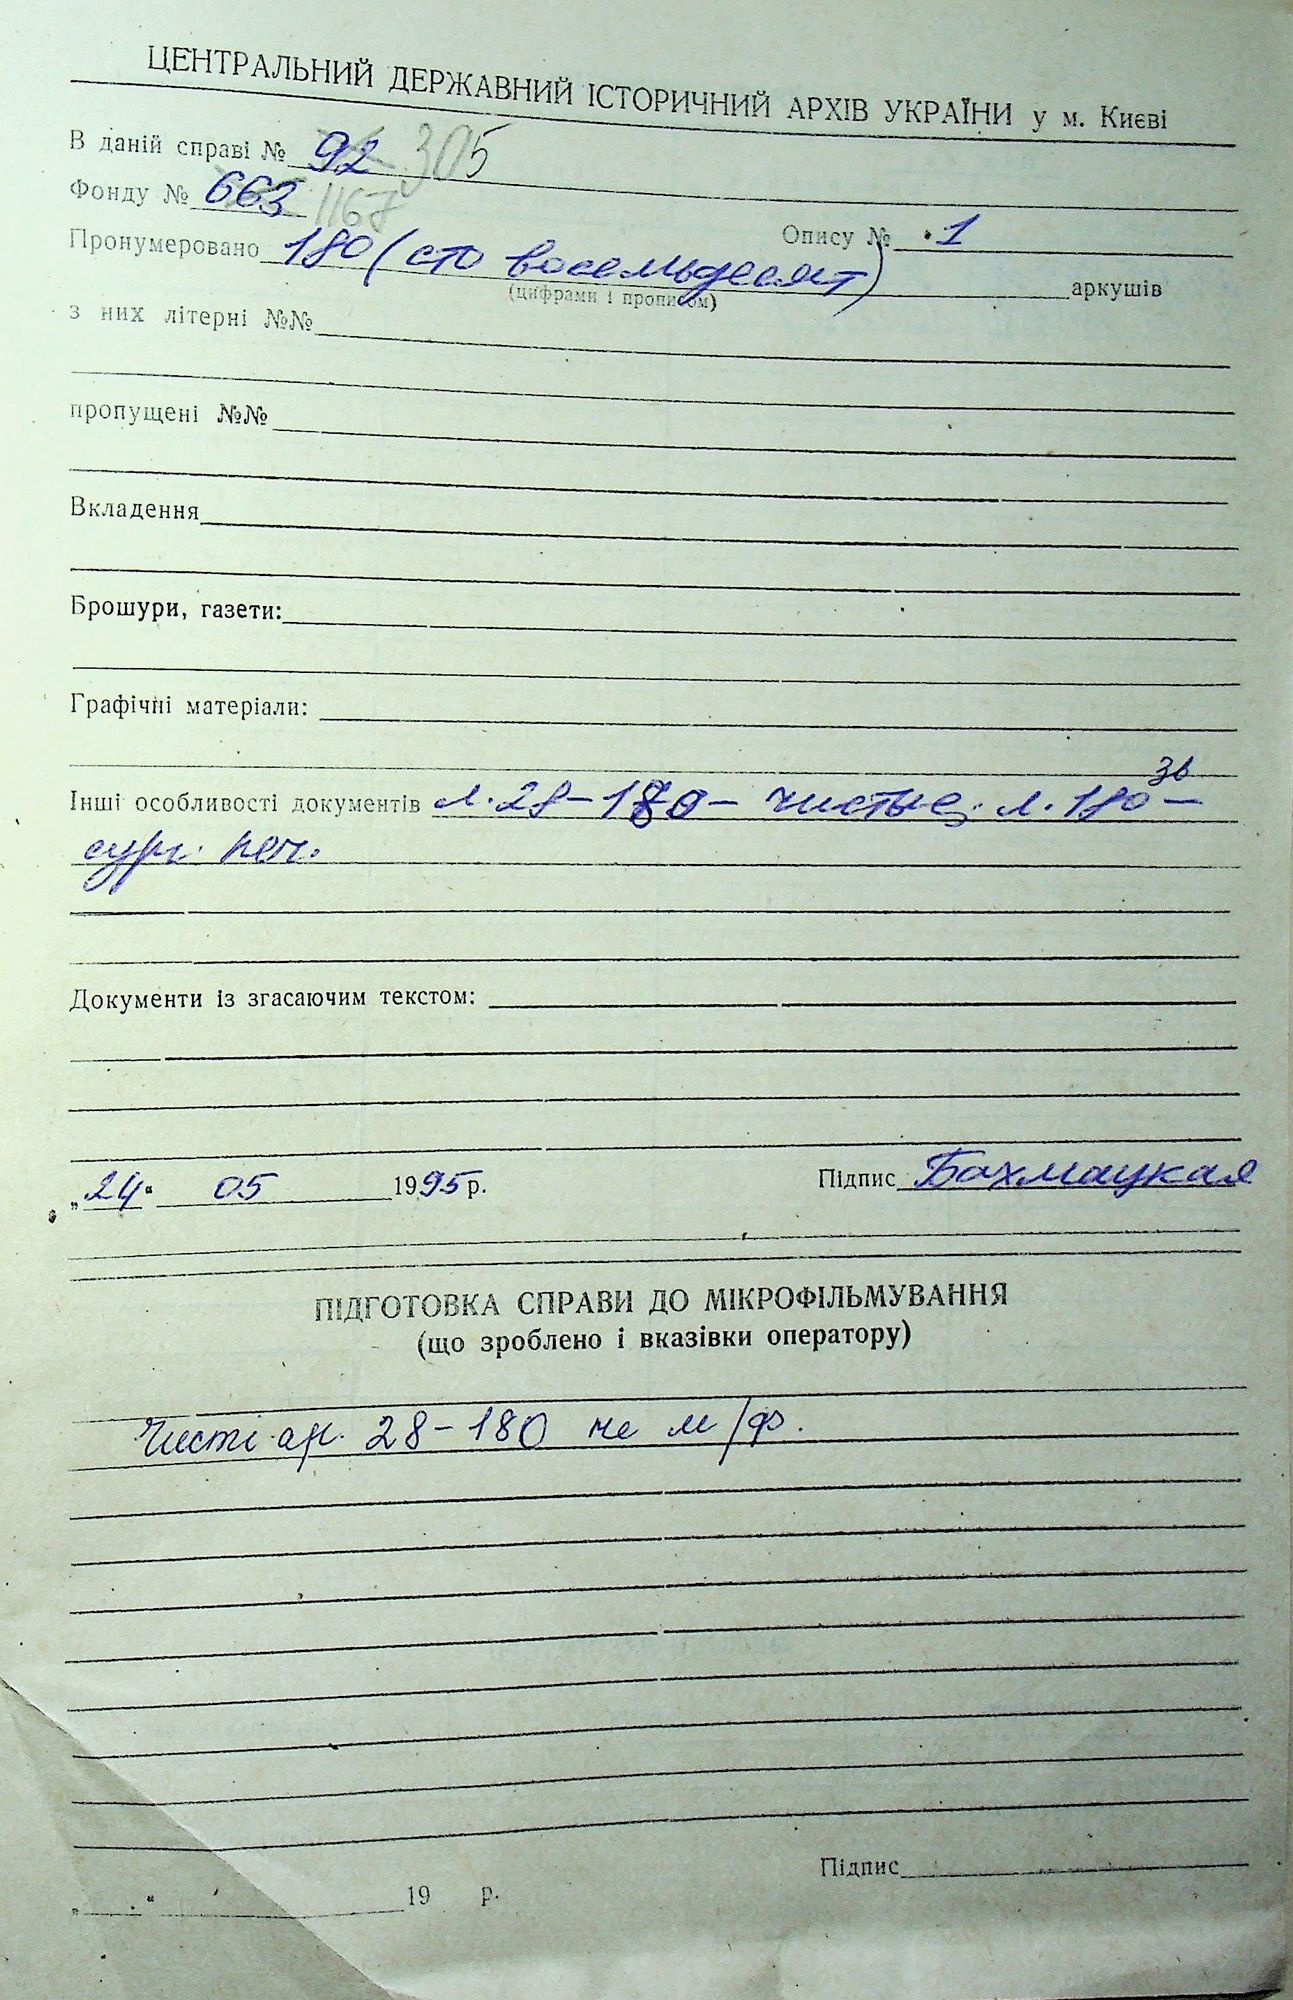 ЦЕНТРАЛЬНИЙ ДЕРЖАВНИЙ ІСТОРИЧНИЙ АРХІВ УКРАЇНИ у м. Києві
В даній справі № 92 305
Фонду № 663 1167
Опису № 1
Пронумеровано 180 (сто восемьдесят) аркушів
(цифрами і прописом)
з них літерні №№
пропущені №№
Вкладення
Брошури, газети:
Графічні матеріали:
Інші особливості документів л. 28-180 - чистые; л. 180 зв -
сург. печ.
Документи із згасаючим текстом:
„24“ 05 1995 р. Підпис Бахмацкая
ПІДГОТОВКА СПРАВИ ДО МІКРОФІЛЬМУВАННЯ
(що зроблено і вказівки оператору)
Чисті арк. 28-180 не м/ф.
Підпис
„ “ 19 р.